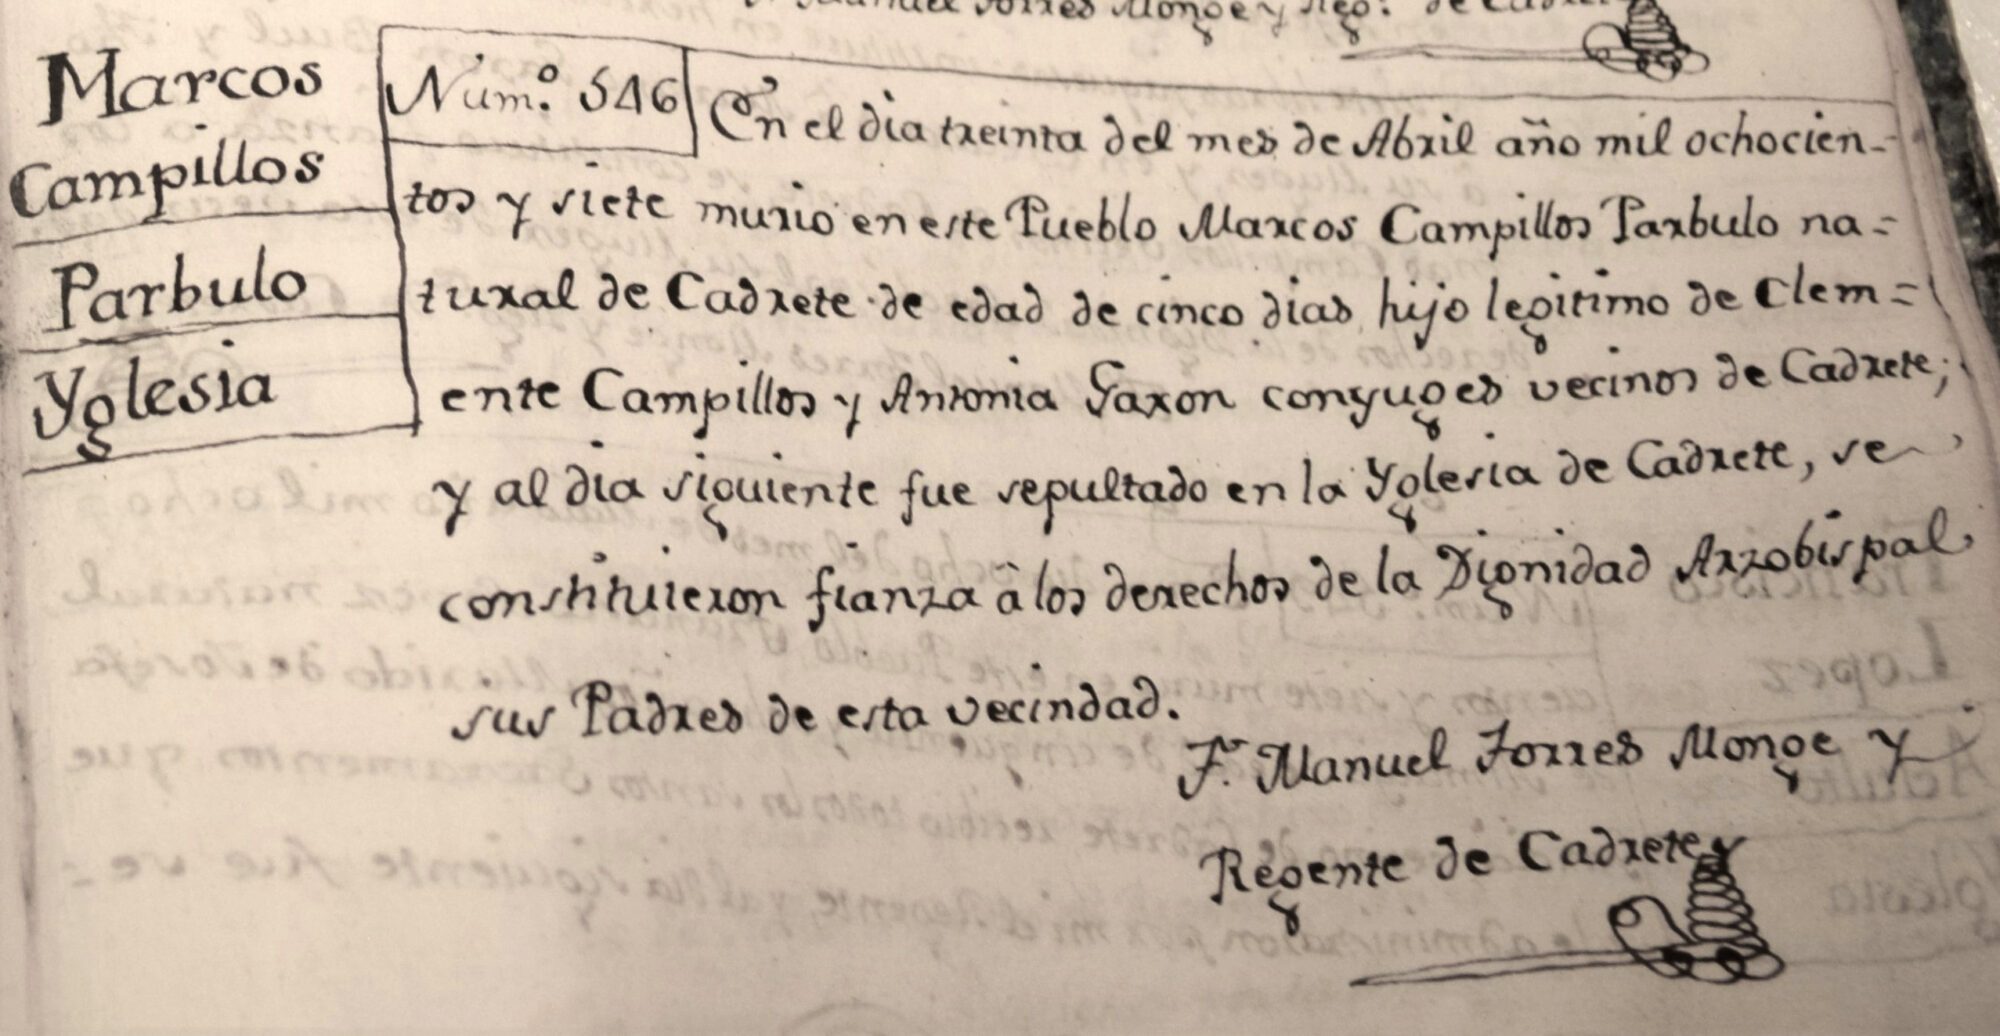 Manuel Torres Monge y Reg.ᵗᵉ de Cadrete
Marcos
Campillos
Parbulo
Yglesia
Num.º 546
En el dia treinta del mes de Abril año mil ochocien-
tos y siete murio en este Pueblo Marcos Campillos Parbulo na=
tural de Cadrete de edad de cinco dias, hijo legitimo de Clem=
ente Campillos y Antonia Gaxon conyuges vecinos de Cadrete;
y al dia siguiente fue sepultado en la Yglesia de Cadrete, se
constituieron fianza â los derechos de la Dignidad Arzobispal
sus Padres de esta vecindad.
Fr. Manuel Torres Monge y
Regente de Cadrete